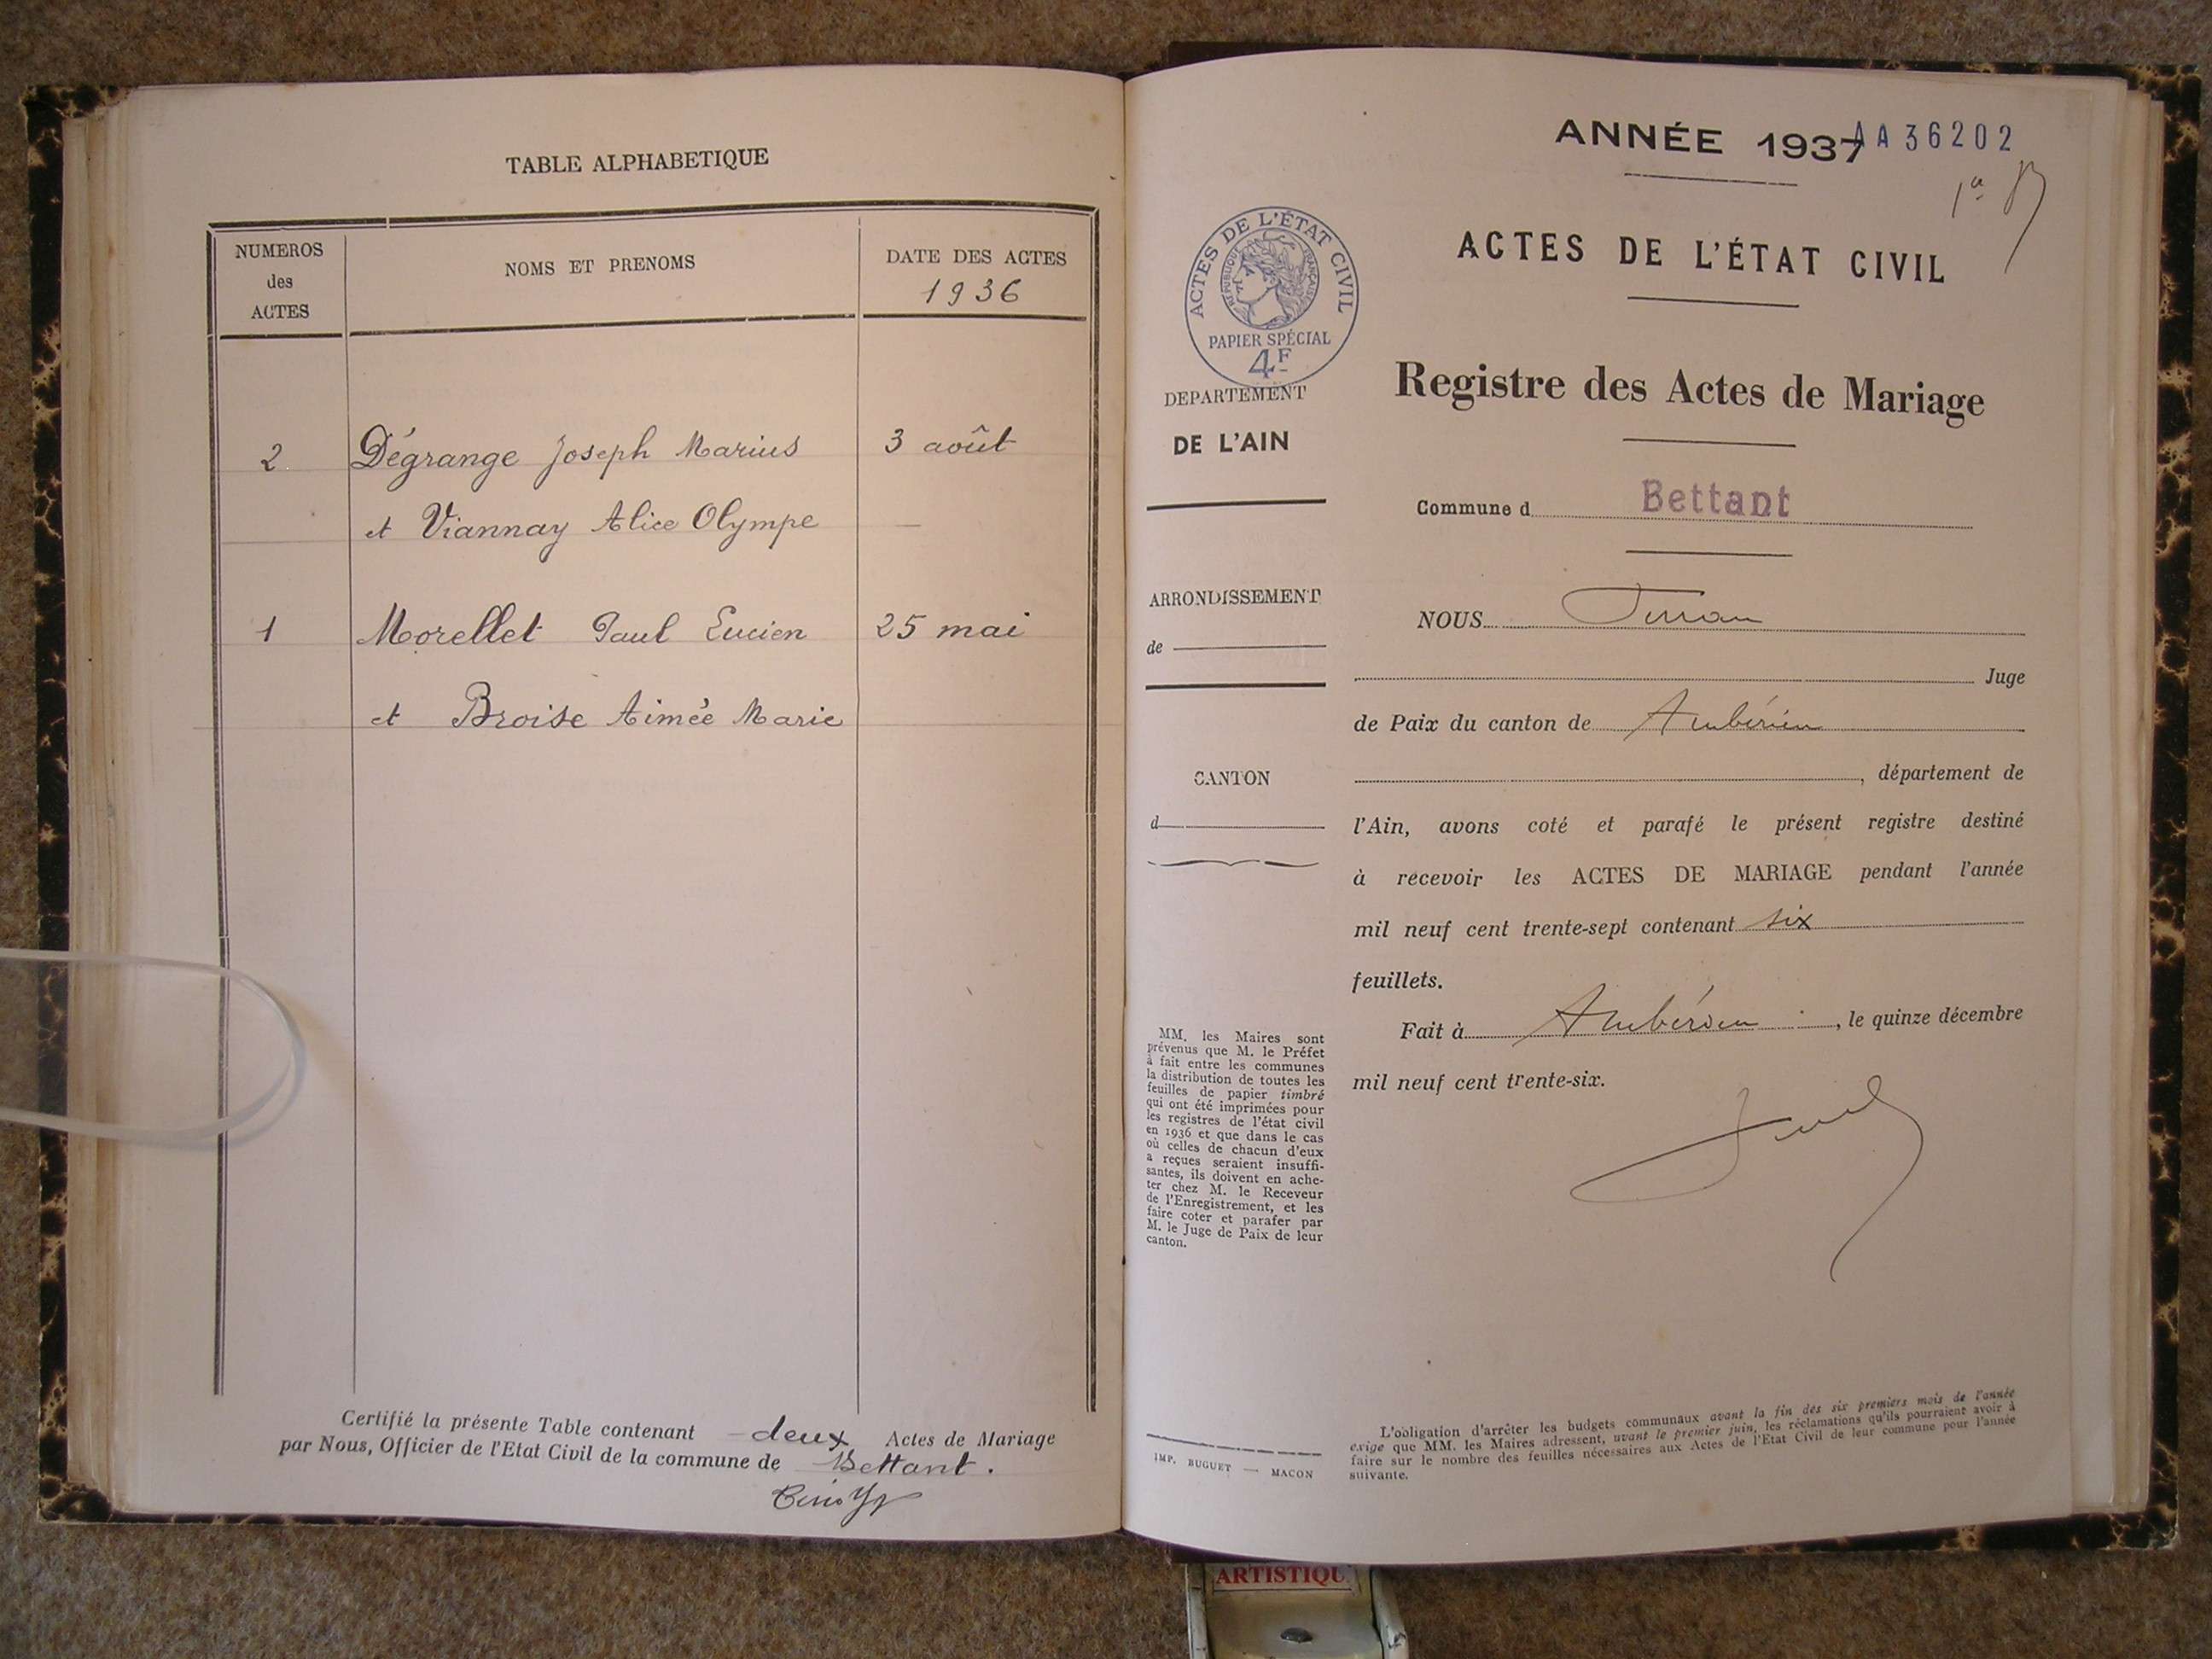 TABLE ALPHABETIQUE
NUMEROS
des
ACTES
NOMS ET PRENOMS
DATE DES ACTES
1936
2 Dégrange Joseph Marius 3 août
et Viannay Alice Olympe —
1 Morellet Paul Lucien 25 mai
et Broise Aimée Marie
Certifié la présente Table contenant deux Actes de Mariage
par Nous, Officier de l'Etat Civil de la commune de Bettant.
ANNÉE 1937
AA 36202
ACTES DE L'ÉTAT CIVIL
RÉPUBLIQUE FRANÇAISE
PAPIER SPÉCIAL
4F
ACTES DE L'ÉTAT CIVIL
Registre des Actes de Mariage
DEPARTEMENT
DE L'AIN
Commune d Bettant
ARRONDISSEMENT
de
CANTON
d
NOUS
Juge
de Paix du canton de Ambérieu
, département de
l'Ain, avons coté et parafé le présent registre destiné
à recevoir les ACTES DE MARIAGE pendant l'année
mil neuf cent trente-sept contenant six
feuillets.
Fait à Ambérieu, le quinze décembre
mil neuf cent trente-six.
MM. les Maires sont
prévenus que M. le Préfet
à fait entre les communes
la distribution de toutes les
feuilles de papier timbré
qui ont été imprimées pour
les registres de l'état civil
en 1936 et que dans le cas
où celles de chacun d'eux
a reçues seraient insuffi-
santes, ils doivent en ache-
ter chez M. le Receveur
de l'Enregistrement, et les
faire coter et parafer par
M. le Juge de Paix de leur
canton.
IMP. BUGUET — MACON
L'obligation d'arrêter les budgets communaux avant la fin des six premiers mois de l'année
exige que MM. les Maires adressent, avant le premier juin, les réclamations qu'ils pourraient avoir à
faire sur le nombre des feuilles nécessaires aux Actes de l'Etat Civil de leur commune pour l'année
suivante.
ARTISTIQU